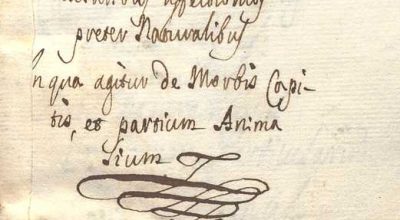 preter Naturalibus
In qua agitur de Morbis Capi-
tis, et partium Anima
lium